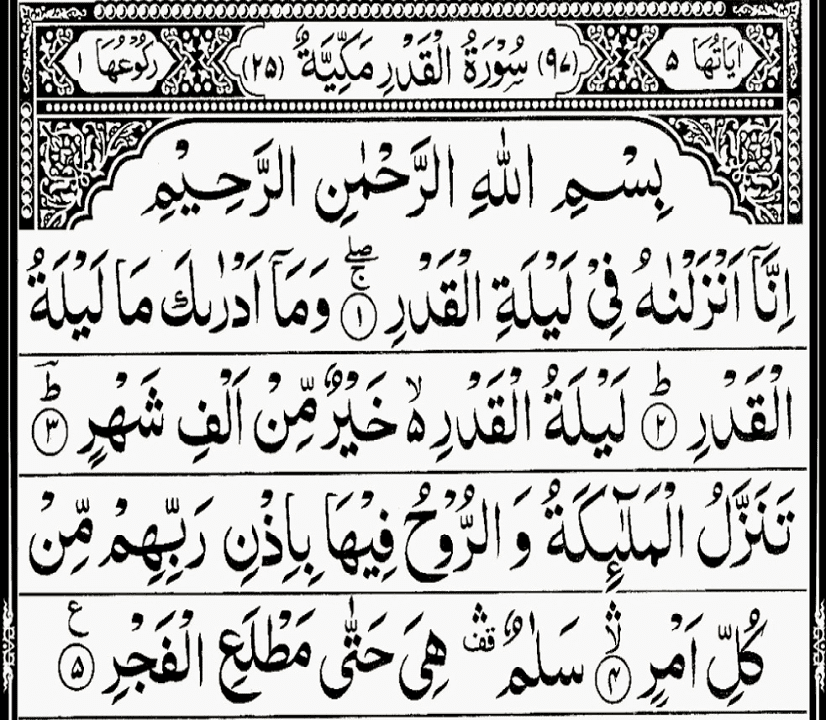 اٰیَاتُهَا ۵ (٩٧) سُوْرَةُ الْقَدْرِ مَكِّیَّةٌ (٢۵) رَكُوْعُهَا ١
بِسْمِ اللّٰهِ الرَّحْمٰنِ الرَّحِیْمِ
اِنَّاۤ اَنْزَلْنٰهُ فِیْ لَیْلَةِ الْقَدْرِ ۖۚ ١ وَمَاۤ اَدْرٰىكَ مَا لَیْلَةُ
الْقَدْرِ ؕ ٢ لَیْلَةُ الْقَدْرِ ۵ۙ خَیْرٌ مِّنْ اَلْفِ شَهْرٍ ؕ ٣
تَنَزَّلُ الْمَلٰٓىِٕكَةُ وَ الرُّوْحُ فِیْهَا بِاِذْنِ رَبِّهِمْ مِّنْ
كُلِّ اَمْرٍ ۛۙ ۴ سَلٰمٌ ۛ قف هِیَ حَتّٰى مَطْلَعِ الْفَجْرِ ع ۵